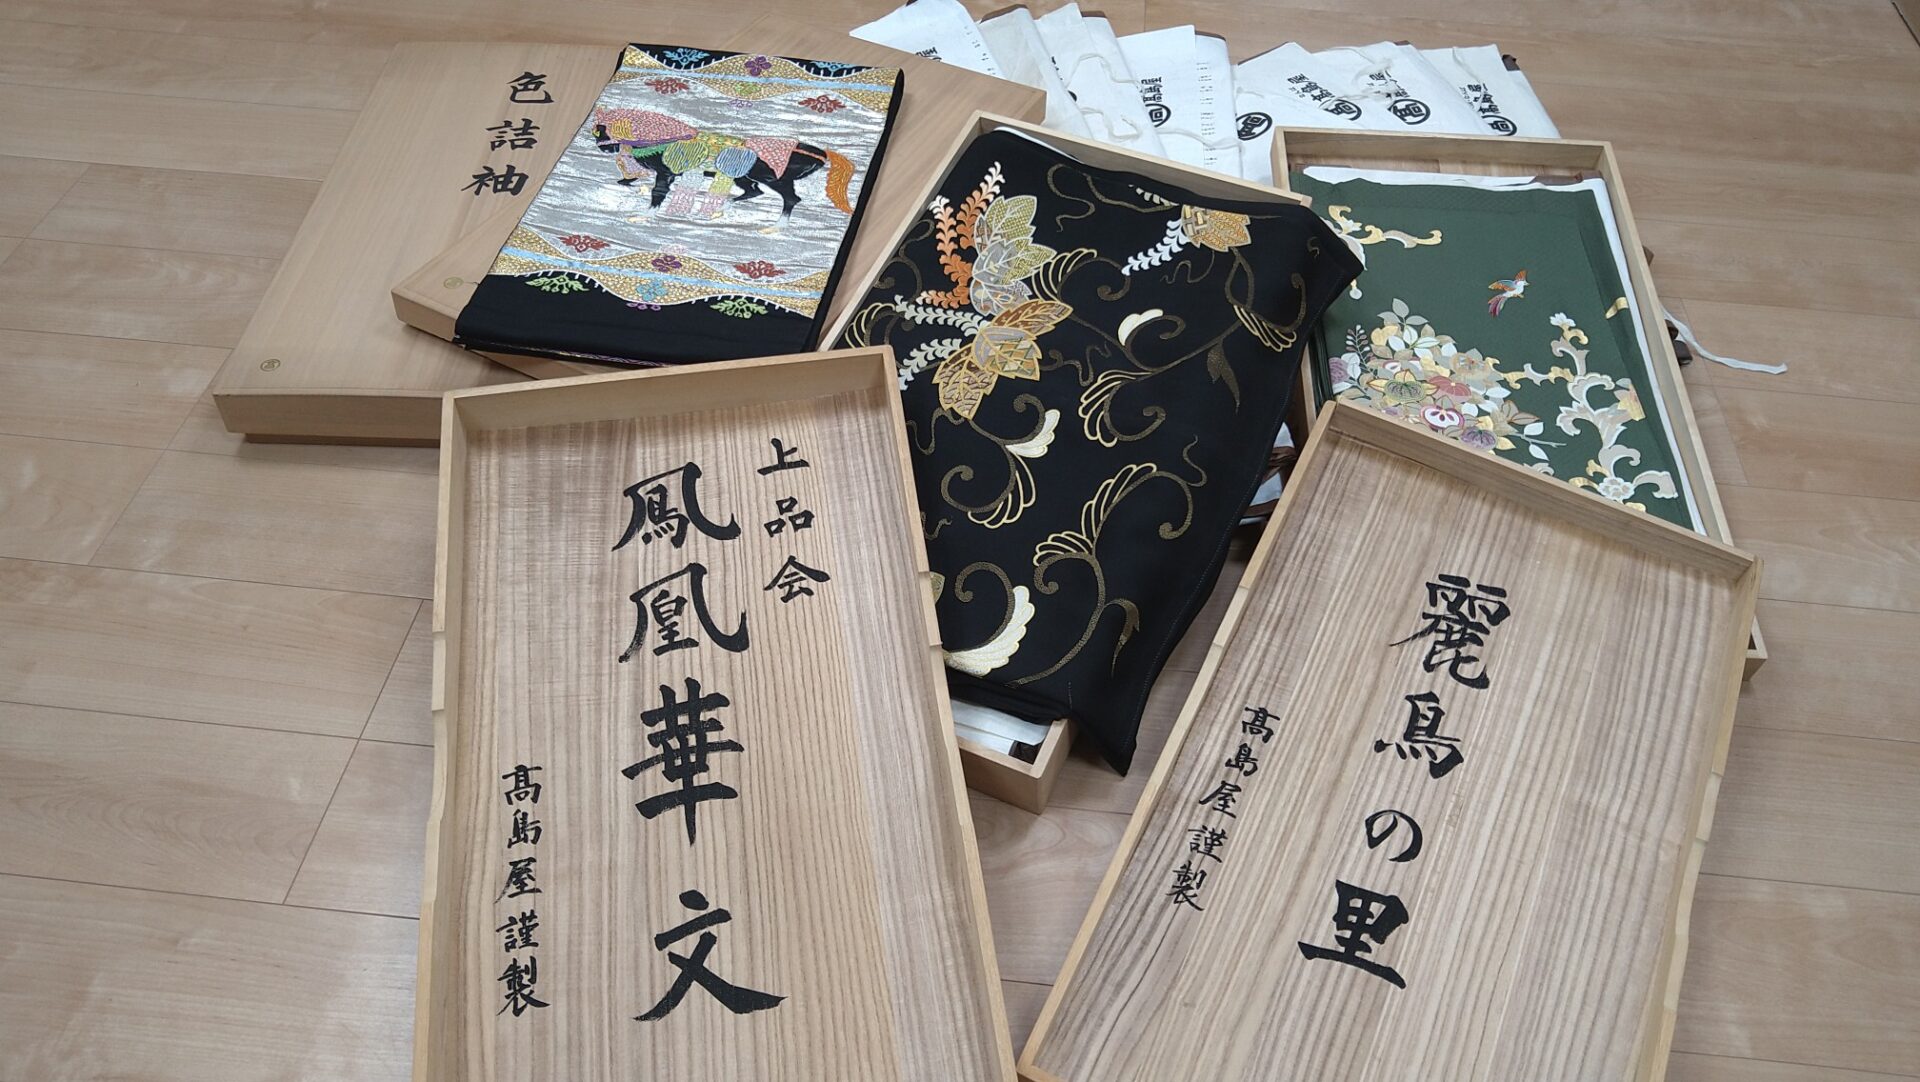 色詰袖
上品会
鳳凰華文
髙島屋謹製
麗鳥の里
髙島屋謹製
髙島屋